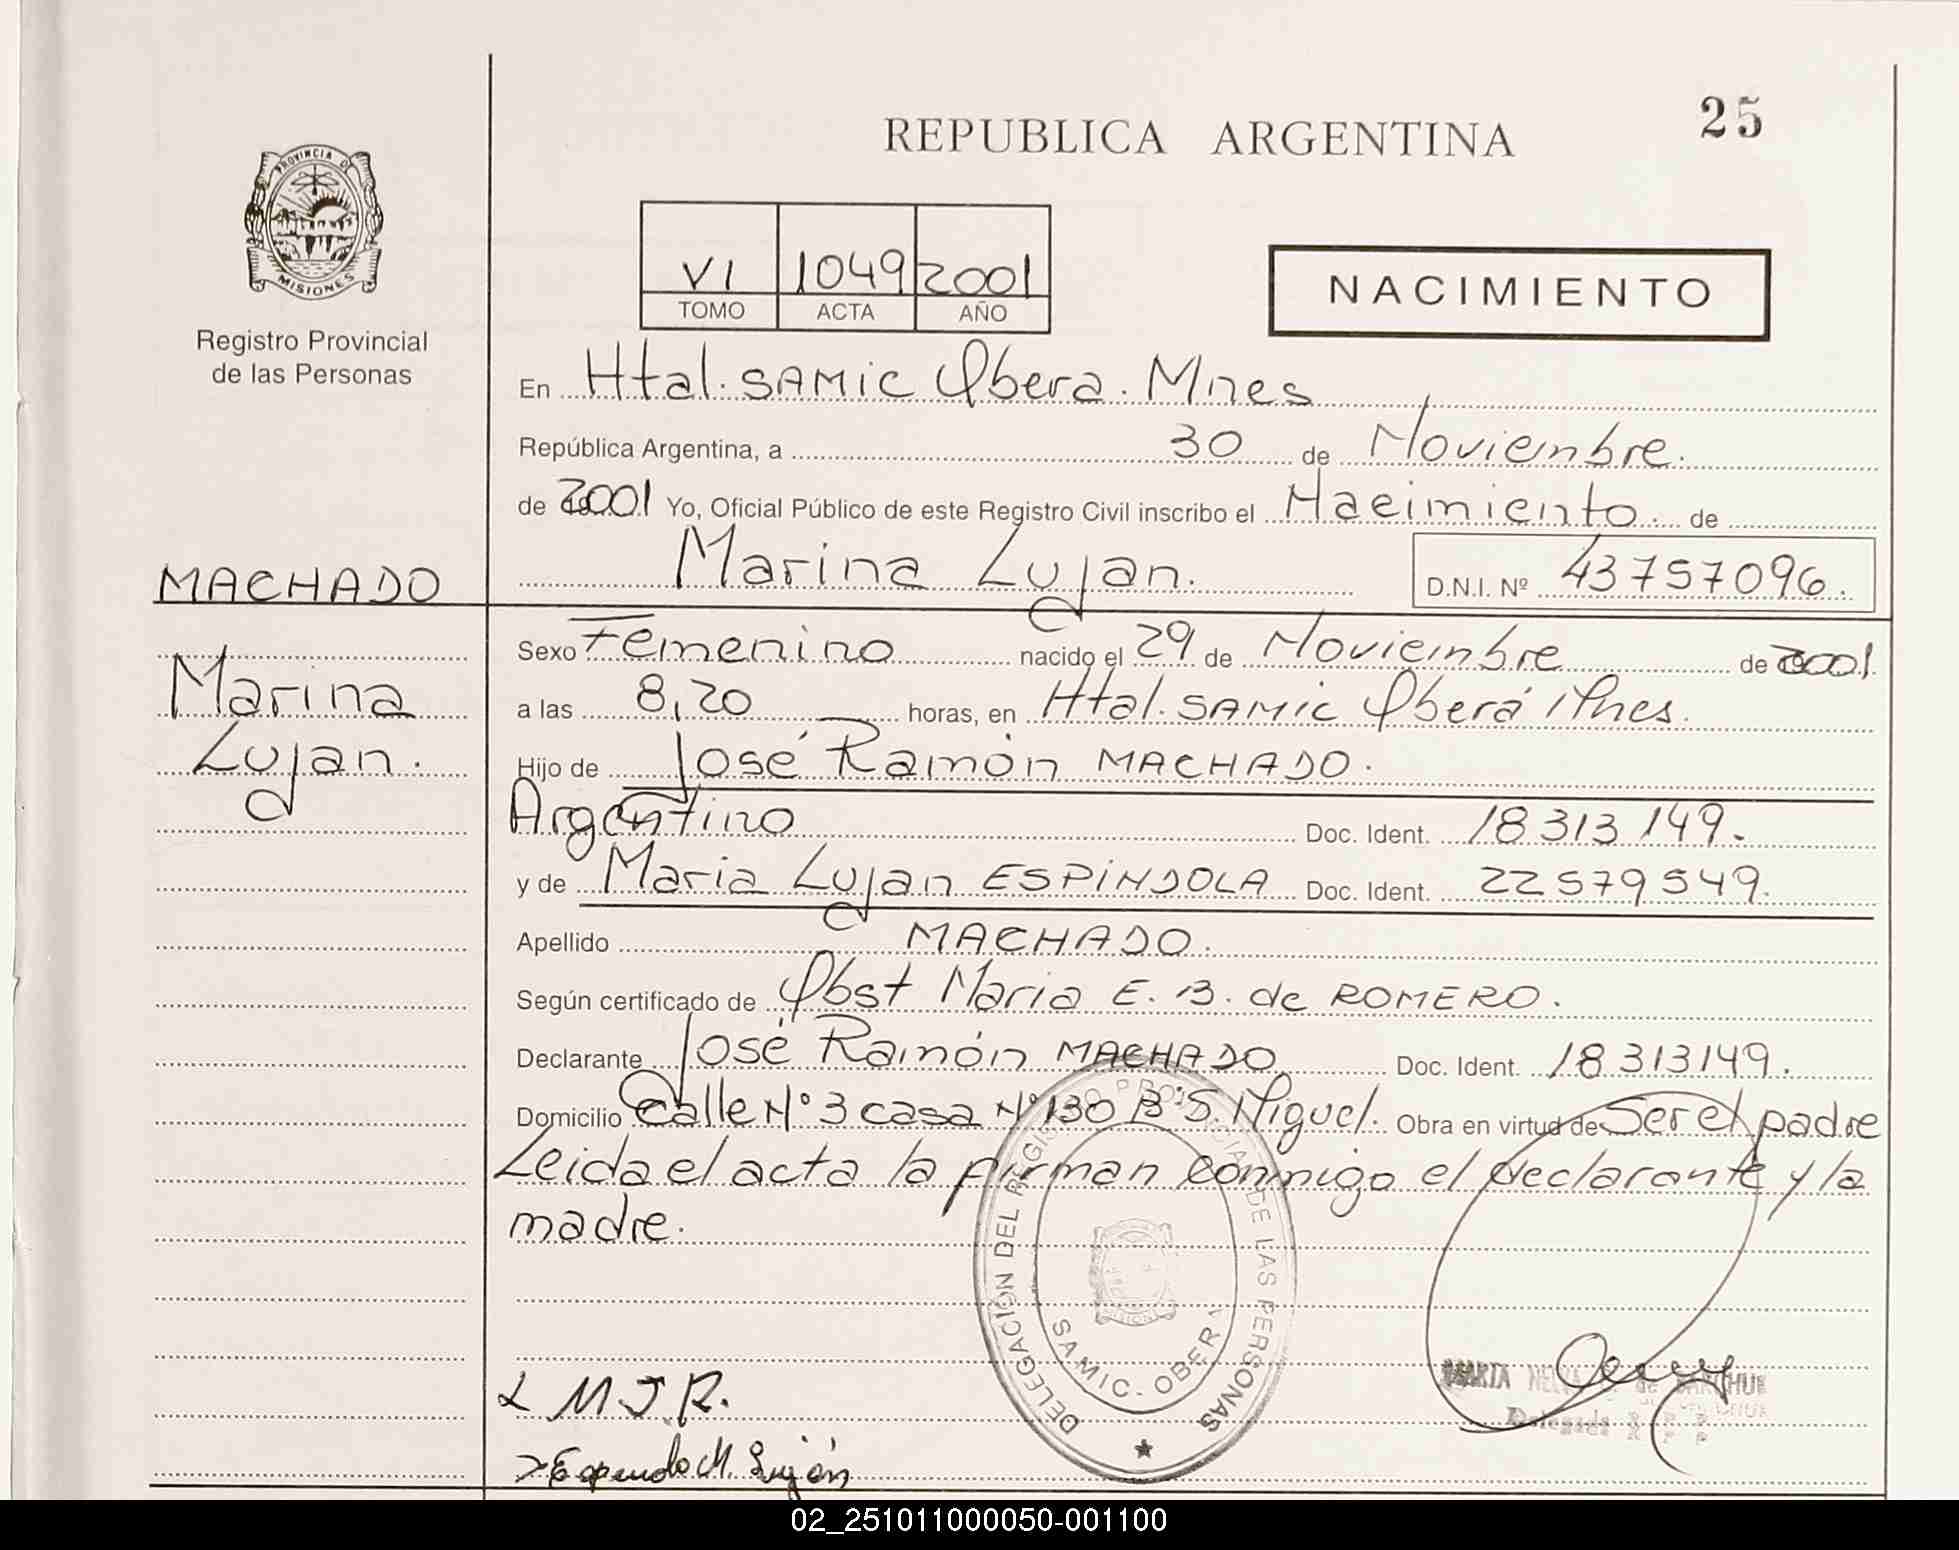 25
REPUBLICA ARGENTINA
PROVINCIA DE
MISIONES
Registro Provincial
de las Personas
VI 1049 2001
TOMO ACTA AÑO
NACIMIENTO
En Htal. SAMIC Obera. Mnes
República Argentina, a 30 de Noviembre.
de 2001 Yo, Oficial Público de este Registro Civil inscribo el Nacimiento. de
Marina Lujan. D.N.I. Nº 43757096.
MACHADO
Marina
Lujan.
Sexo Femenino nacido el 29 de Noviembre de 2001.
a las 8,20 horas, en Htal. SAMIC Oberá Mnes.
Hijo de José Ramón MACHADO.
Argentino Doc. Ident. 18 313 149.
y de Maria Lujan ESPINDOLA Doc. Ident. 22579549.
Apellido MACHADO.
Según certificado de Obst Maria E. B. de ROMERO.
Declarante José Ramón MACHADO Doc. Ident. 18 313149.
Domicilio Calle Nº 3 casa Nº 130 Bº S. Miguel. Obra en virtud de ser el padre
Leida el acta la firman conmigo el declarante y la
madre.
DELEGACIÓN DEL REGISTRO PROVINCIAL DE LAS PERSONAS
SAMIC. OBERA
MISIONES
MARTA
Delegada
M J. R.
M. Luján
02_251011000050-001100